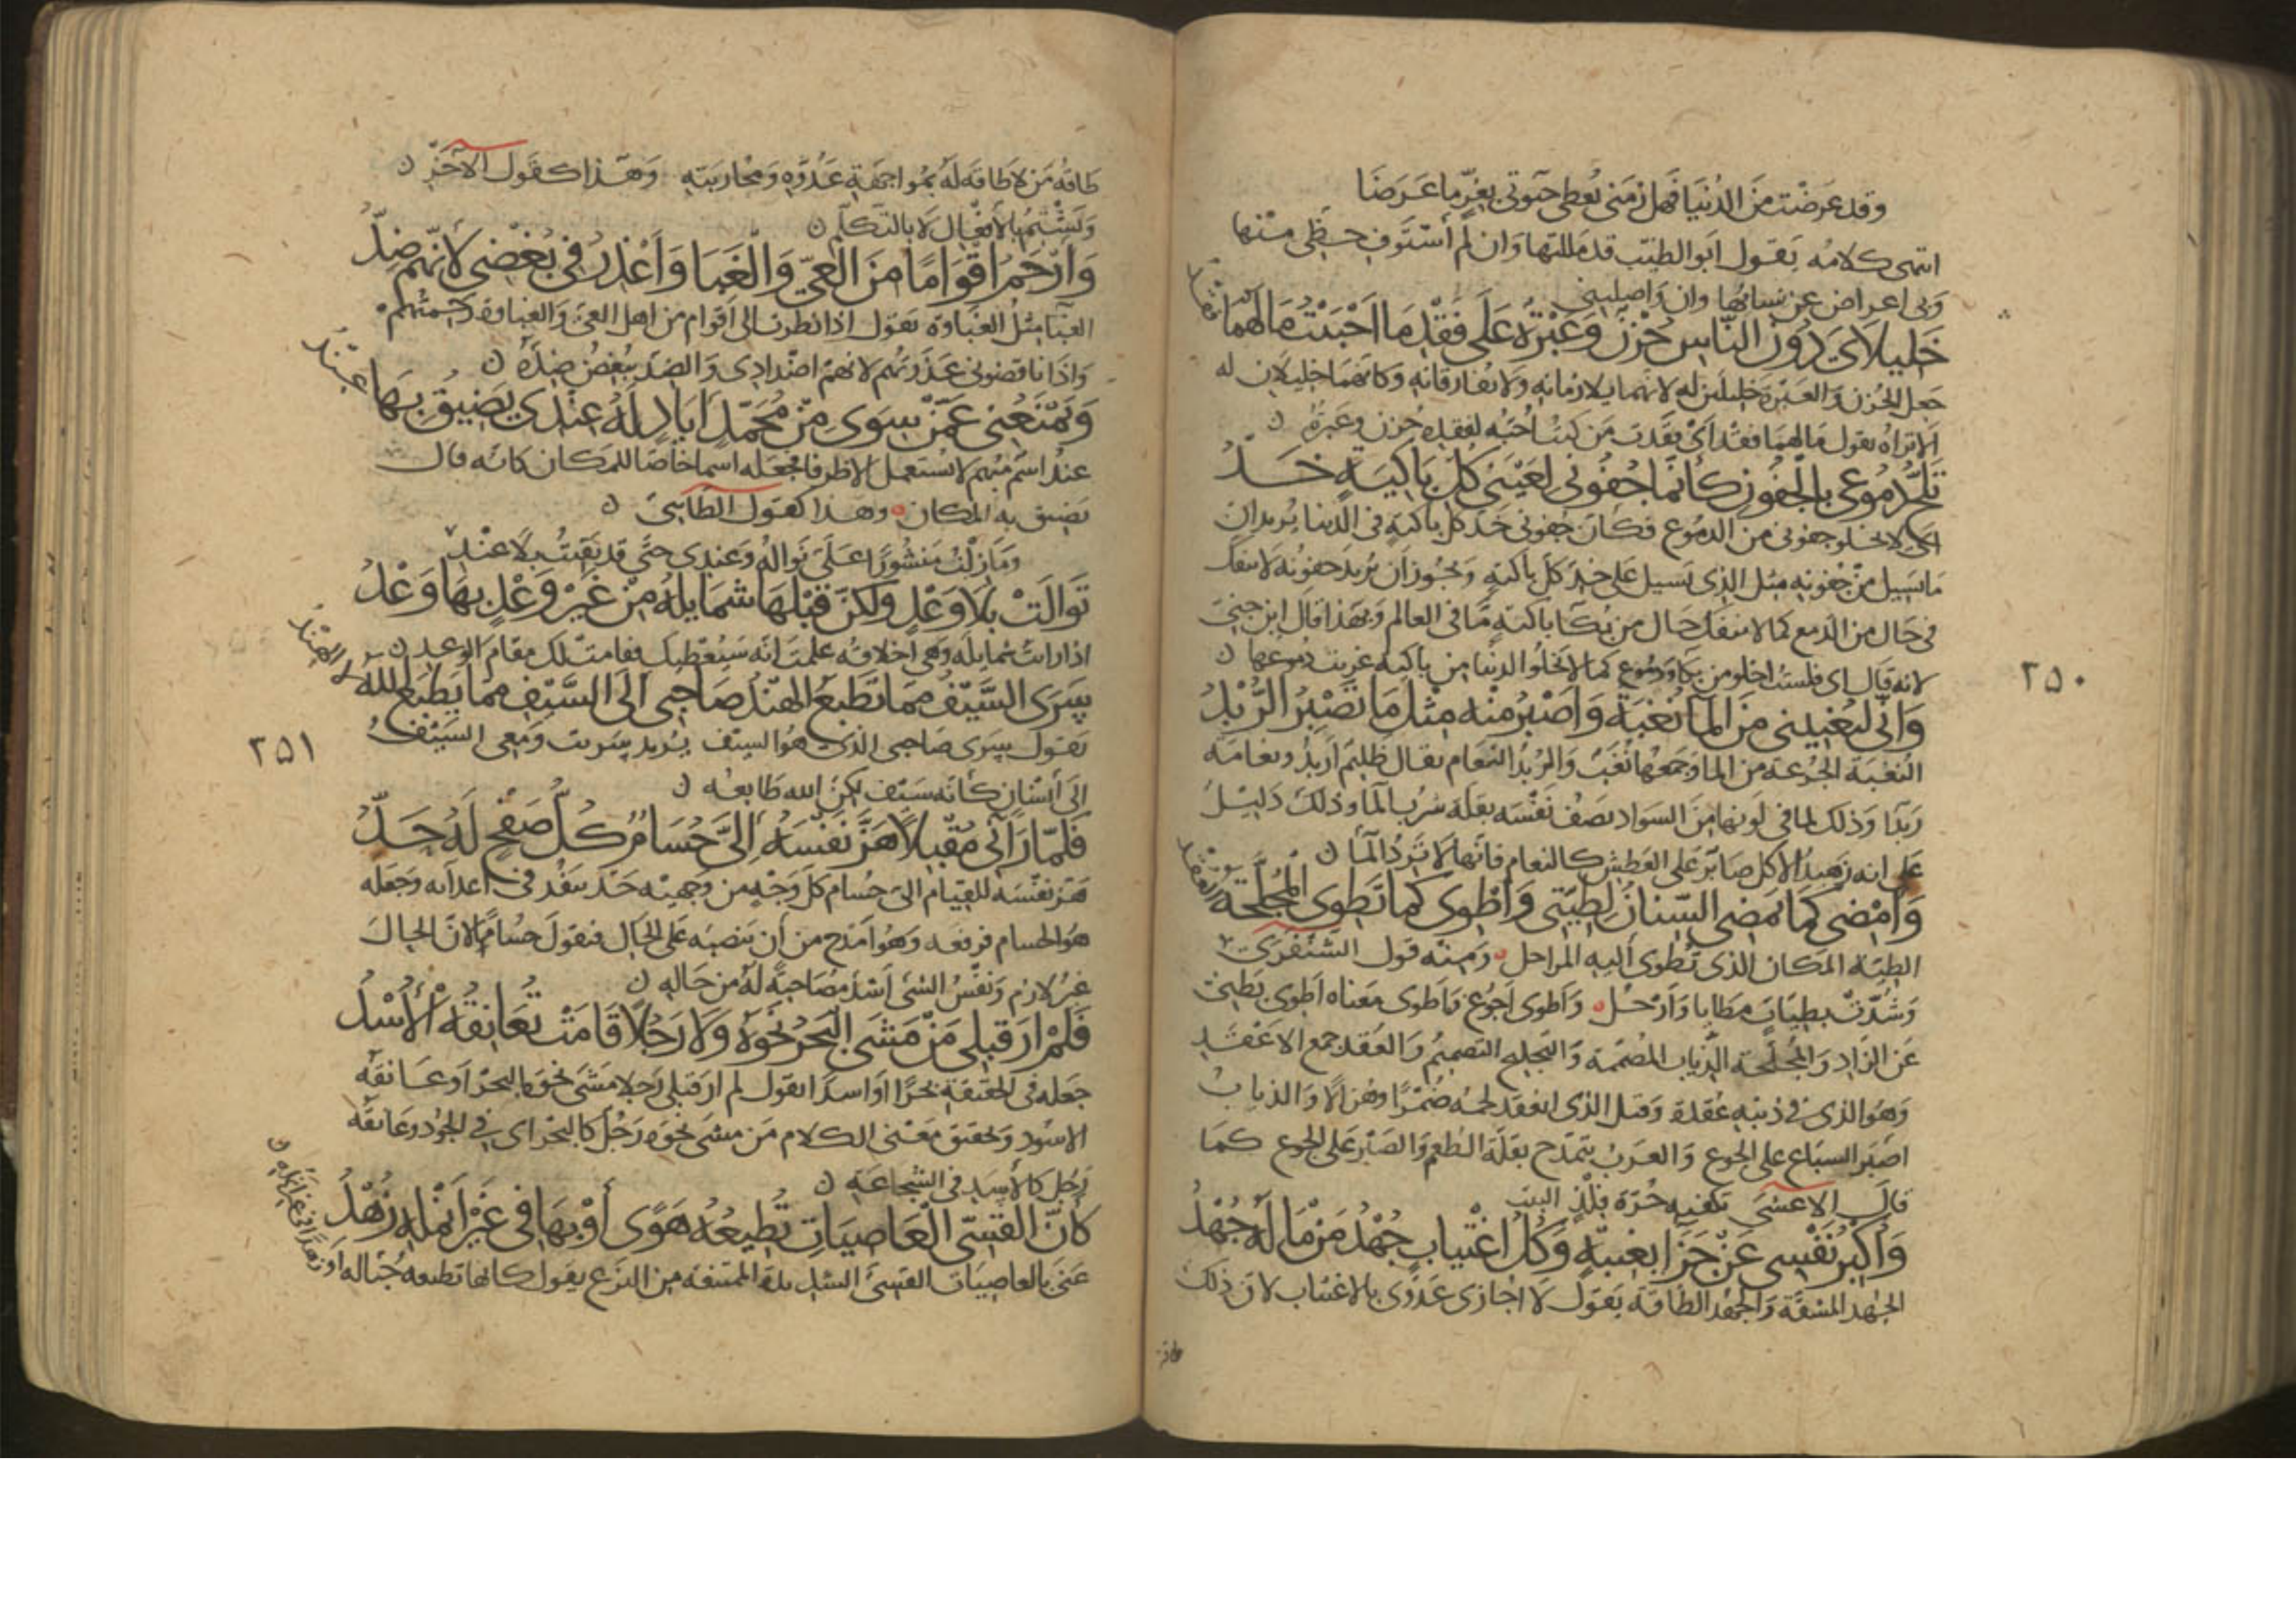 وقد عرضت من الدنيا فهل زمني معطي حيوتي بغر ما عرضا
انتهى كلامه يقول ابو الطيب قد مللتها وان لم أستوف حظي منها
وبي اعراض عن نسائها وان واصلنني
خَليلايَ دُونَ النّاسِ حُزنٌ وَعَبْرَةٌ عَلَى فَقْدِ مَا احْبَبْتُ مَا لَهُمَا فَقْدُ
جعل الحزن والعبرة خليلين له لانهما يلازمانه ولا يفارقانه وكانهما خليلان له
الا تراه يقول ما لهما فقد أي فقدت من كنت احبه لفقده حزن وعبرة
تَلَجُّ دُمُوعي بالجُفُونِ كأنّما جُفُوني لعَيْنَي كُلِّ باكِيَةٍ خَدُّ
اي لا تخلو جفوني من الدموع فكأن جفوني خد كل باكية في الدنيا يريد ان
ما يسيل من جفونه مثل الذي يسيل على خد كل باكية ويجوز أن يريد جفونه لا تنفك
في حال من الدمع كما لا تنفك حال من بكا باكية ما في العالم وبهذا قال ابن جني
لانه قال اي فلست اخلو من بكا ودموع كما لا تخلوا الدنيا من باكية غزيرت دموعها
وَإنّي لتُغْنِيني مِنَ الماءِ نُغْبَةٌ وَاصْبِرُ مِنْهُ مِثْلَ مَا تَصْبِرُ الرُّبْدُ
النغبة الجرعة من الما وجمعها نغب والربد النعام يقال ظليم أربد ونعامة
ربدا وذلك لما في لونها من السواد يصف نفسه بقلة شرب الما وذلك دليل
على انه زهيد الاكل صابر على العطش كالنعام فانها لا ترد الما
وَأمْضي كمَا يَمضي السّنانُ لِطِيّتي وَأطْوي كمَا تَطوي المُجَلِّحَةُ العُقْدُ
الطية المكان الذي تطوى أليه المراحل ومنه قول الشنفرى
وشدت بطيات مطايا وأرحل وأطوى اجوع وأطوى معناه اطوى بطني
عن الزاد والمجلحة الذياب المصممة والتجليح التصميم والعقد جمع الاعقد
وهو الذي في ذنبه عقدة وقيل الذي انعقد لحمه ضمرا وهزالا والذياب
اصبر السباع على الجوع والعرب تتمدح بقلة الطعم والصبر على الجوع كما
قال الاعشى تكفيه حزة فلذ البيت
وَأُكْبِرُ نَفْسِي عَنْ جَزَا بِغِيبَةٍ وَكُلُّ اغْتِيَابٍ جُهْدُ مَنْ مَا لَهُ جُهْدُ
الجهد المشقة والجهد الطاقة يقول لا اجازي عدوي بالاغتياب لان ذلك
٢٥٠
طاقة من لا طاقة له بمواجهة عدوه ومحاربته وهذا كقول الآخر
ونشتم بالأفعال لا بالتكلم
وَأرْحَمُ اقْوَامًا مِنَ العِيّ وَالغَبَا وَأعْذِرُ في بُغْضِي لأنّهُمُ ضِدُّ
الغبا مثل الغباوة يقول اذا نظرت الى اقوام من اهل العي والغباوة رحمتهم
واذا ناقضوني عذرتهم لانهم اضدادي والضد يبغض ضده
وَيَمْنَعُني عَمّنْ سِوَى مِنْ مُحَمّدٍ أيَادٍ لَهُ عِنْدي يَضِيقُ بهَا عِنْدُ
عند اسم مبهم لا يستعمل الا ظرفا فجعله اسما خاصا للمكان كانه قال
يضيق به المكان وهذا كقول الطائي
وما زلت منشورا على نواله وعندي حتى قد بقيت بلا عند
تَوَالَتْ بلا وَعْدٍ وَلَكِنّ قَبْلَهَا شَمَايِلَهُ مِنْ غَيْرِ وَعْدٍ بهَا وَعْدُ
اذا رايت شمايله وهي اخلاقه علمت انه سيعطيك فقامت لك مقام الوعد
سِرَى السّيفُ مِمّا تَطبَعُ الهندُ صَاحِبي إلى السّيفِ مِمّا يَطبَعُ للهُ لا الهِنْدُ
يقول سرى صاحبي الذي هو السيف يريد سريت ومعي السيف
الى أنسان كأنه سيف لكن الله طابعه
فَلَمّا رَآني مُقْبِلًا هَزّ نَفْسَهُ إلَيّ حُسَامٌ كُلُّ صَفْحٍ لَهُ حَدُّ
هز نفسه للقيام الى حسام كل وجه من وجهيه حد ينفذ في اعدائه وجعله
هو الحسام فرفعه وهو امدح من أن ينصبه على الحال فيقول حساما لان الحال
غير لازم ونفس الشي أشد مصاحبة له من حاله
فَلَمْ ارَ قَبْلِي مَنْ مَشَى البَحْرُ نحوَهُ وَلا رَجُلًا قَامَتْ تُعَانِقُهُ الأُسْدُ
جعله في الحقيقة بحرا او اسدا يقول لم ار قبلي رجلا مشى نحوه البحر او عانقه
الاسود وتحقيق معنى الكلام من مشى نحوه رجل كالبحر اي في الجود وعانقه
رجل كالأسد في الشجاعة
كأنّ القِسِيّ العَاصِيَاتِ تُطِيعُهُ هَوًى أوْ بِهَا في غَيْرِ أُنْمُلِهِ زُهْدُ
عنى بالعاصيات القسي الشديدة الممتنعة من النزع يقول كانها تطيعه حبا له او زهدا في غير انامله
٢٥١